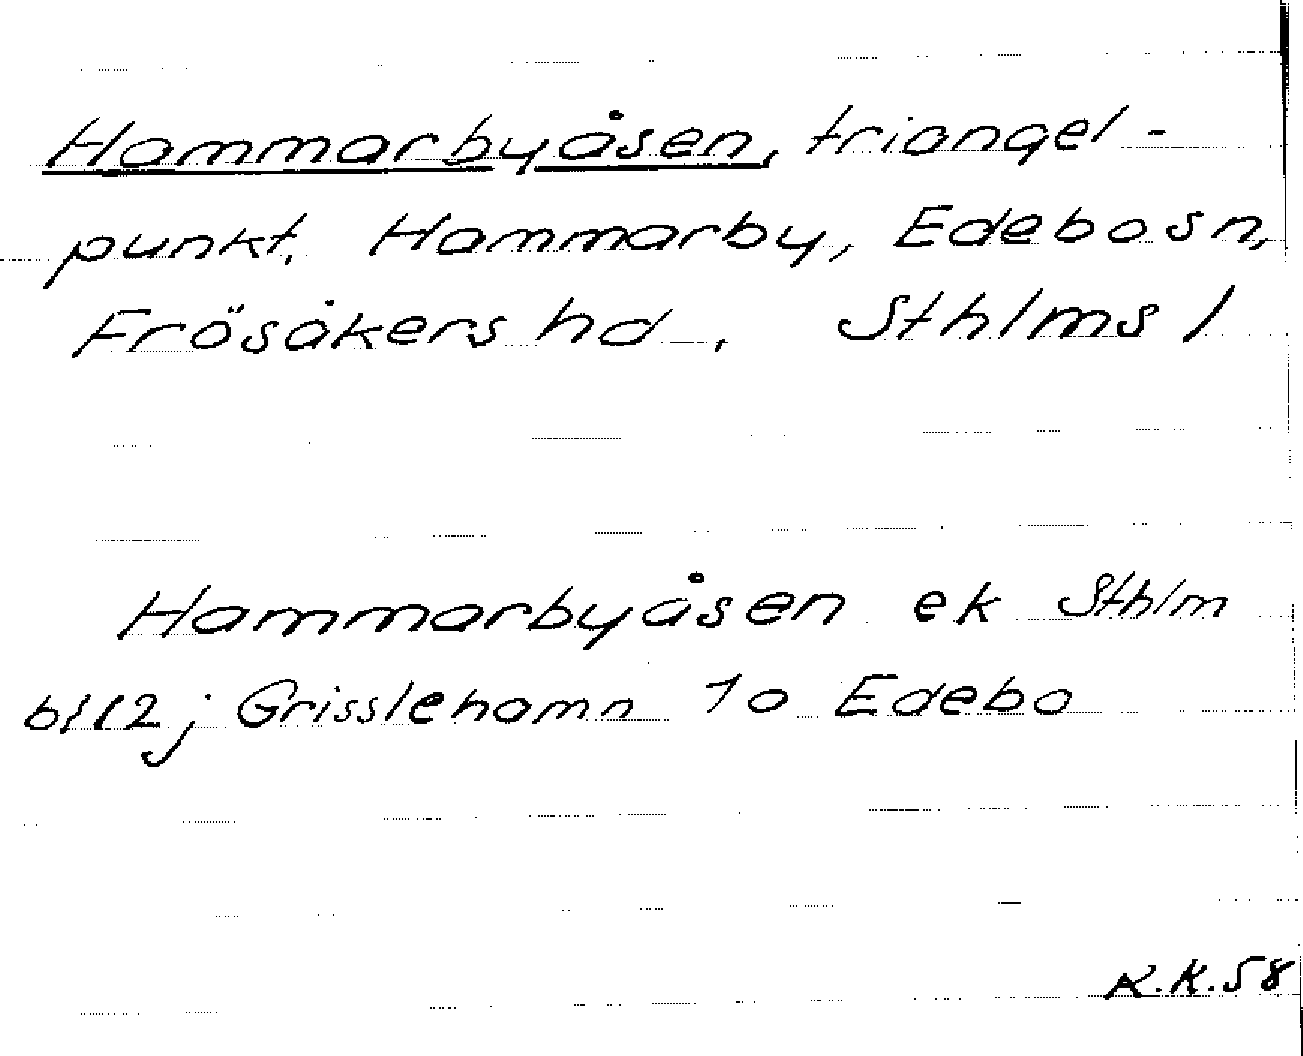 Hammarbyåsen, triangel-
punkt. Hammarby, Edebo sn,
Frösåkers hd. Sthlms l
Hammarbyåsen ek Sthlm
bl 12j Grisslehamn 10 Edebo
K.K. 58